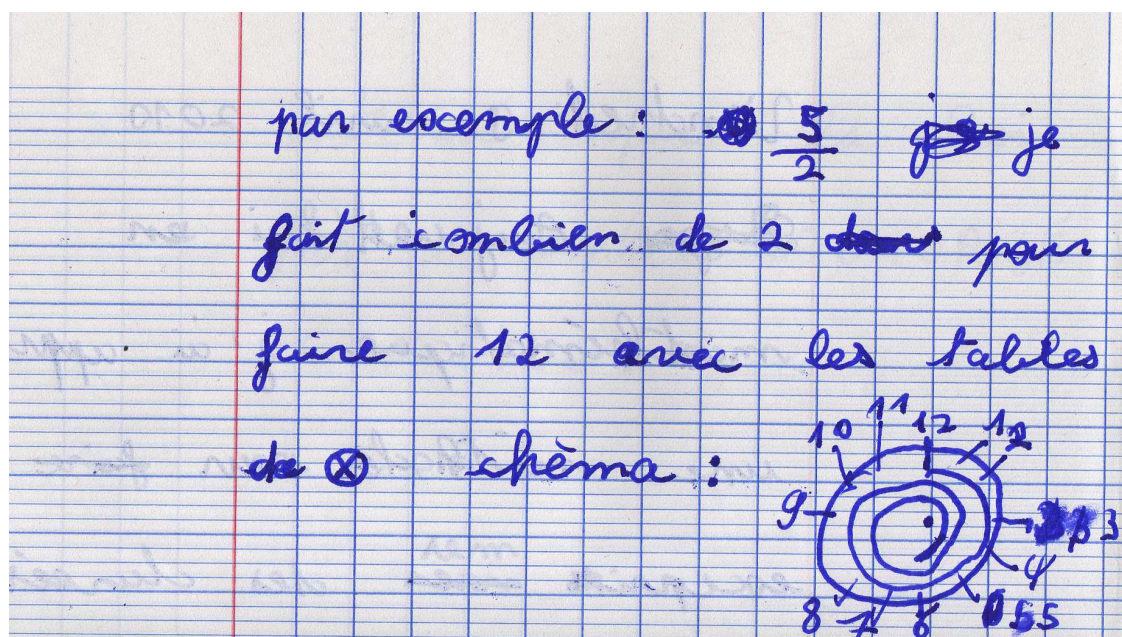 par excemple : 5/2 je
fait combien de 2 pour
faire 12 avec les tables
de ⊗ chèma :
10 11 12 1 2
9 3
8 7 6 5 4